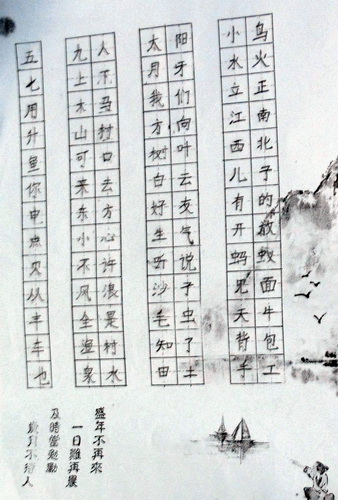 鸟火正南北子的放蚁面牛包工
小水立江西儿有开蚂见天背手
阳牙们向叶云友气说子虫了土
太月我方树白好生听沙毛知田
人下马村口去方心许浪是村水
九上木山可来东小不风全湿泉
五七用升鱼你电点贝从丰车也
盛年不再來
一日難再晨
及時當勉勵
歲月不待人